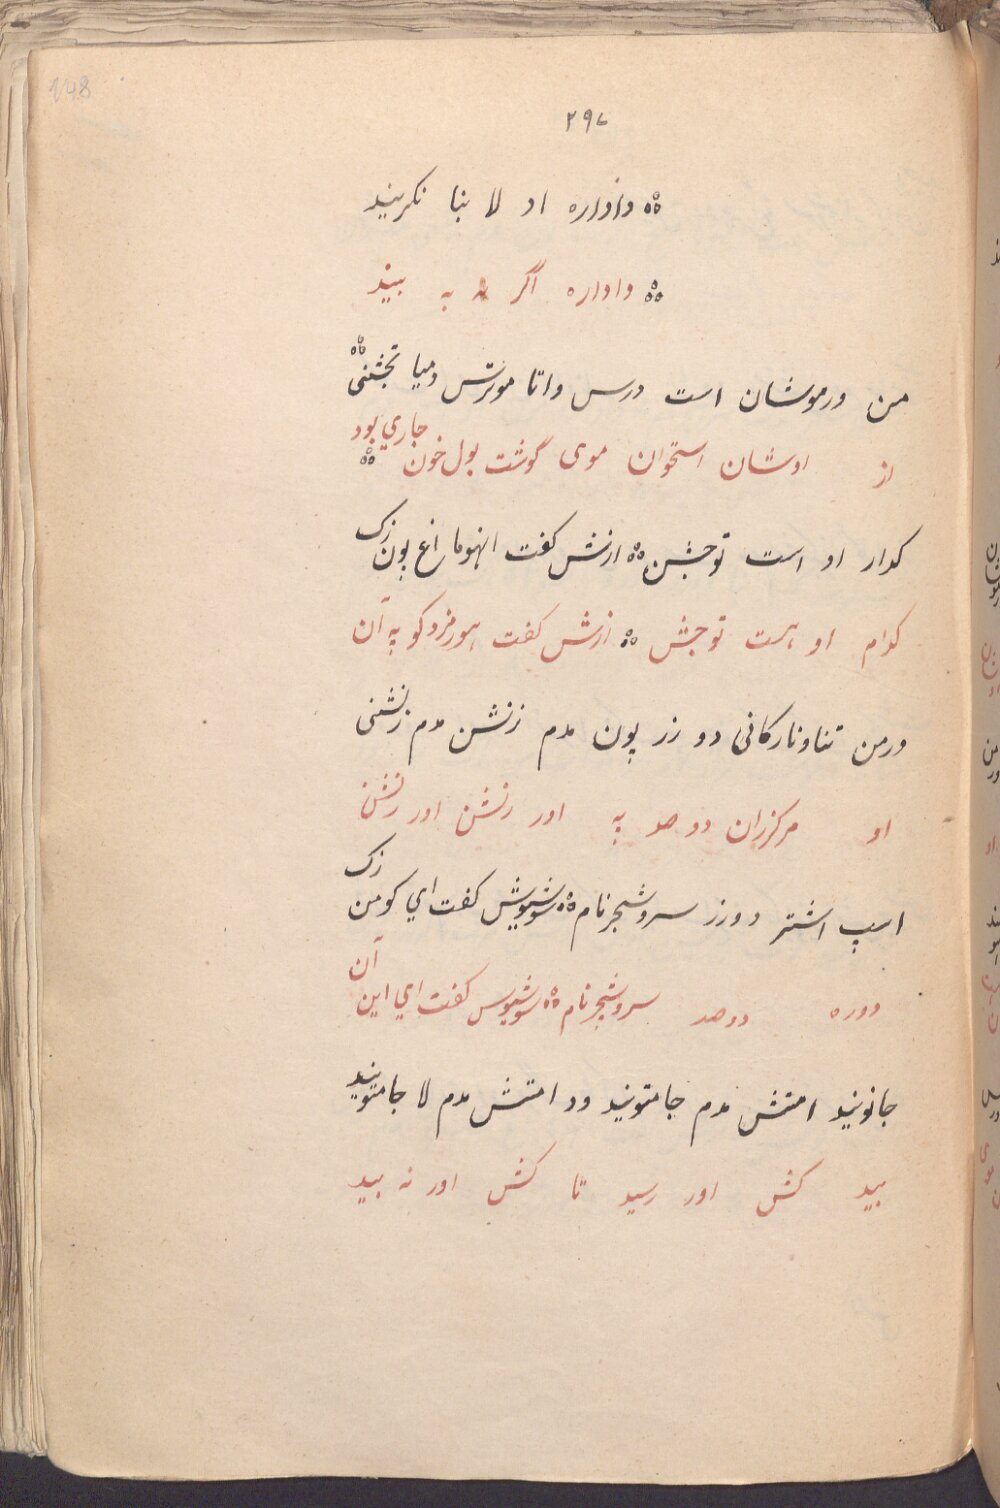 148
۲۹۷
داداره اد لا بنا نکرنید
داداره اگر به بیند
من ورموشان است درس واتا مونرتس دمیا تجشنی
از اوشان استخوان موی گوشت بول خون جاری بود
کدار او است توجشن ازنش کفت انهوما اغ پون زک
کدام او هست توجش ازش کفت هورمزد کو په آن
ورمن تناونارکانی دو زر پون مدم زنشن مدم زنشنی
او مرکرزان دو صد په اور زنشن اور زنشن
اسپ اشتر دو زر سروشجرنام شوشیوش کفت ای کو من زک
دوره دو صد سروشجرنام شوشیوس کفت ای این آن
جانونید امتش مدم جامتونید ود امتش مدم لا جامتونید
بید کش اور رسید تا کش اور نه بید